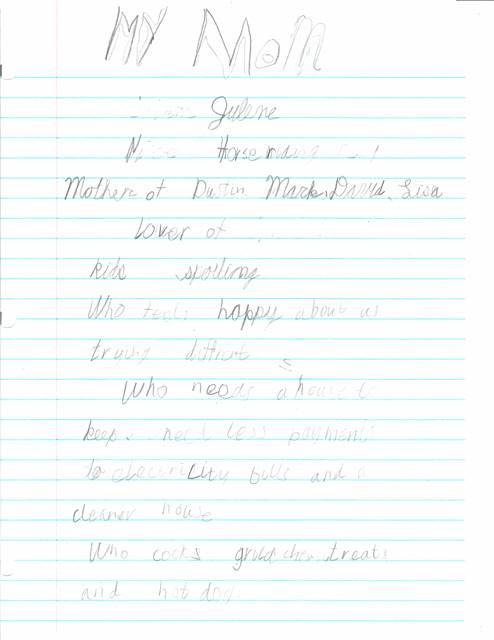 MY MOM
Julene
Nice Horse riding
Mother of Dustin Mark, David, Lisa
Lover of
kids spoiling
Who feels happy about us
trying
Who needs a house to
keep. need less payments
to electricity bills and a
cleaner house
Who cooks treats
and hot dog